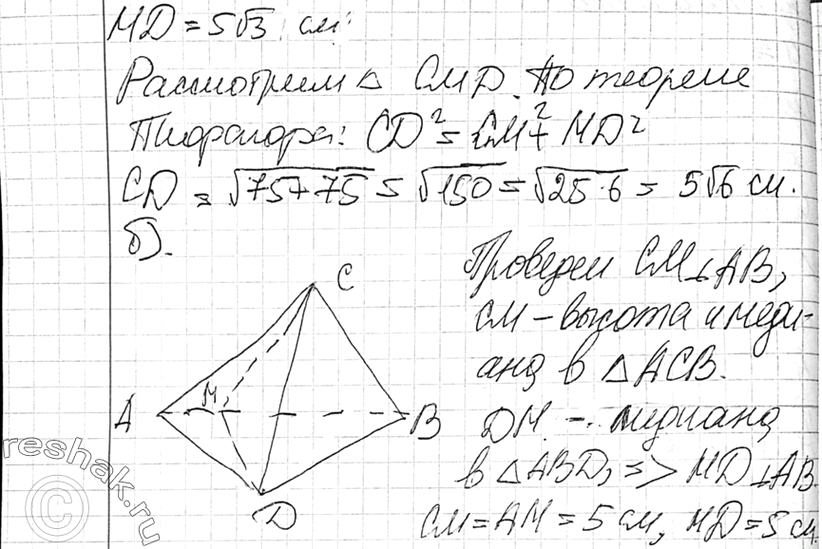 MD = 5√3 см.
Рассмотрим △ CMD. По теореме
Пифагора: CD² = CM² + MD²
CD = √75+75 = √150 = √25·6 = 5√6 см.
б).
Проведем CM⊥AB,
CM – высота и меди-
ана в △ACB.
DM – медиана
в △ABD, => MD⊥AB.
CM = AM = 5 см, MD = 5 см.
C
A
M
B
D
reshak.ru
©